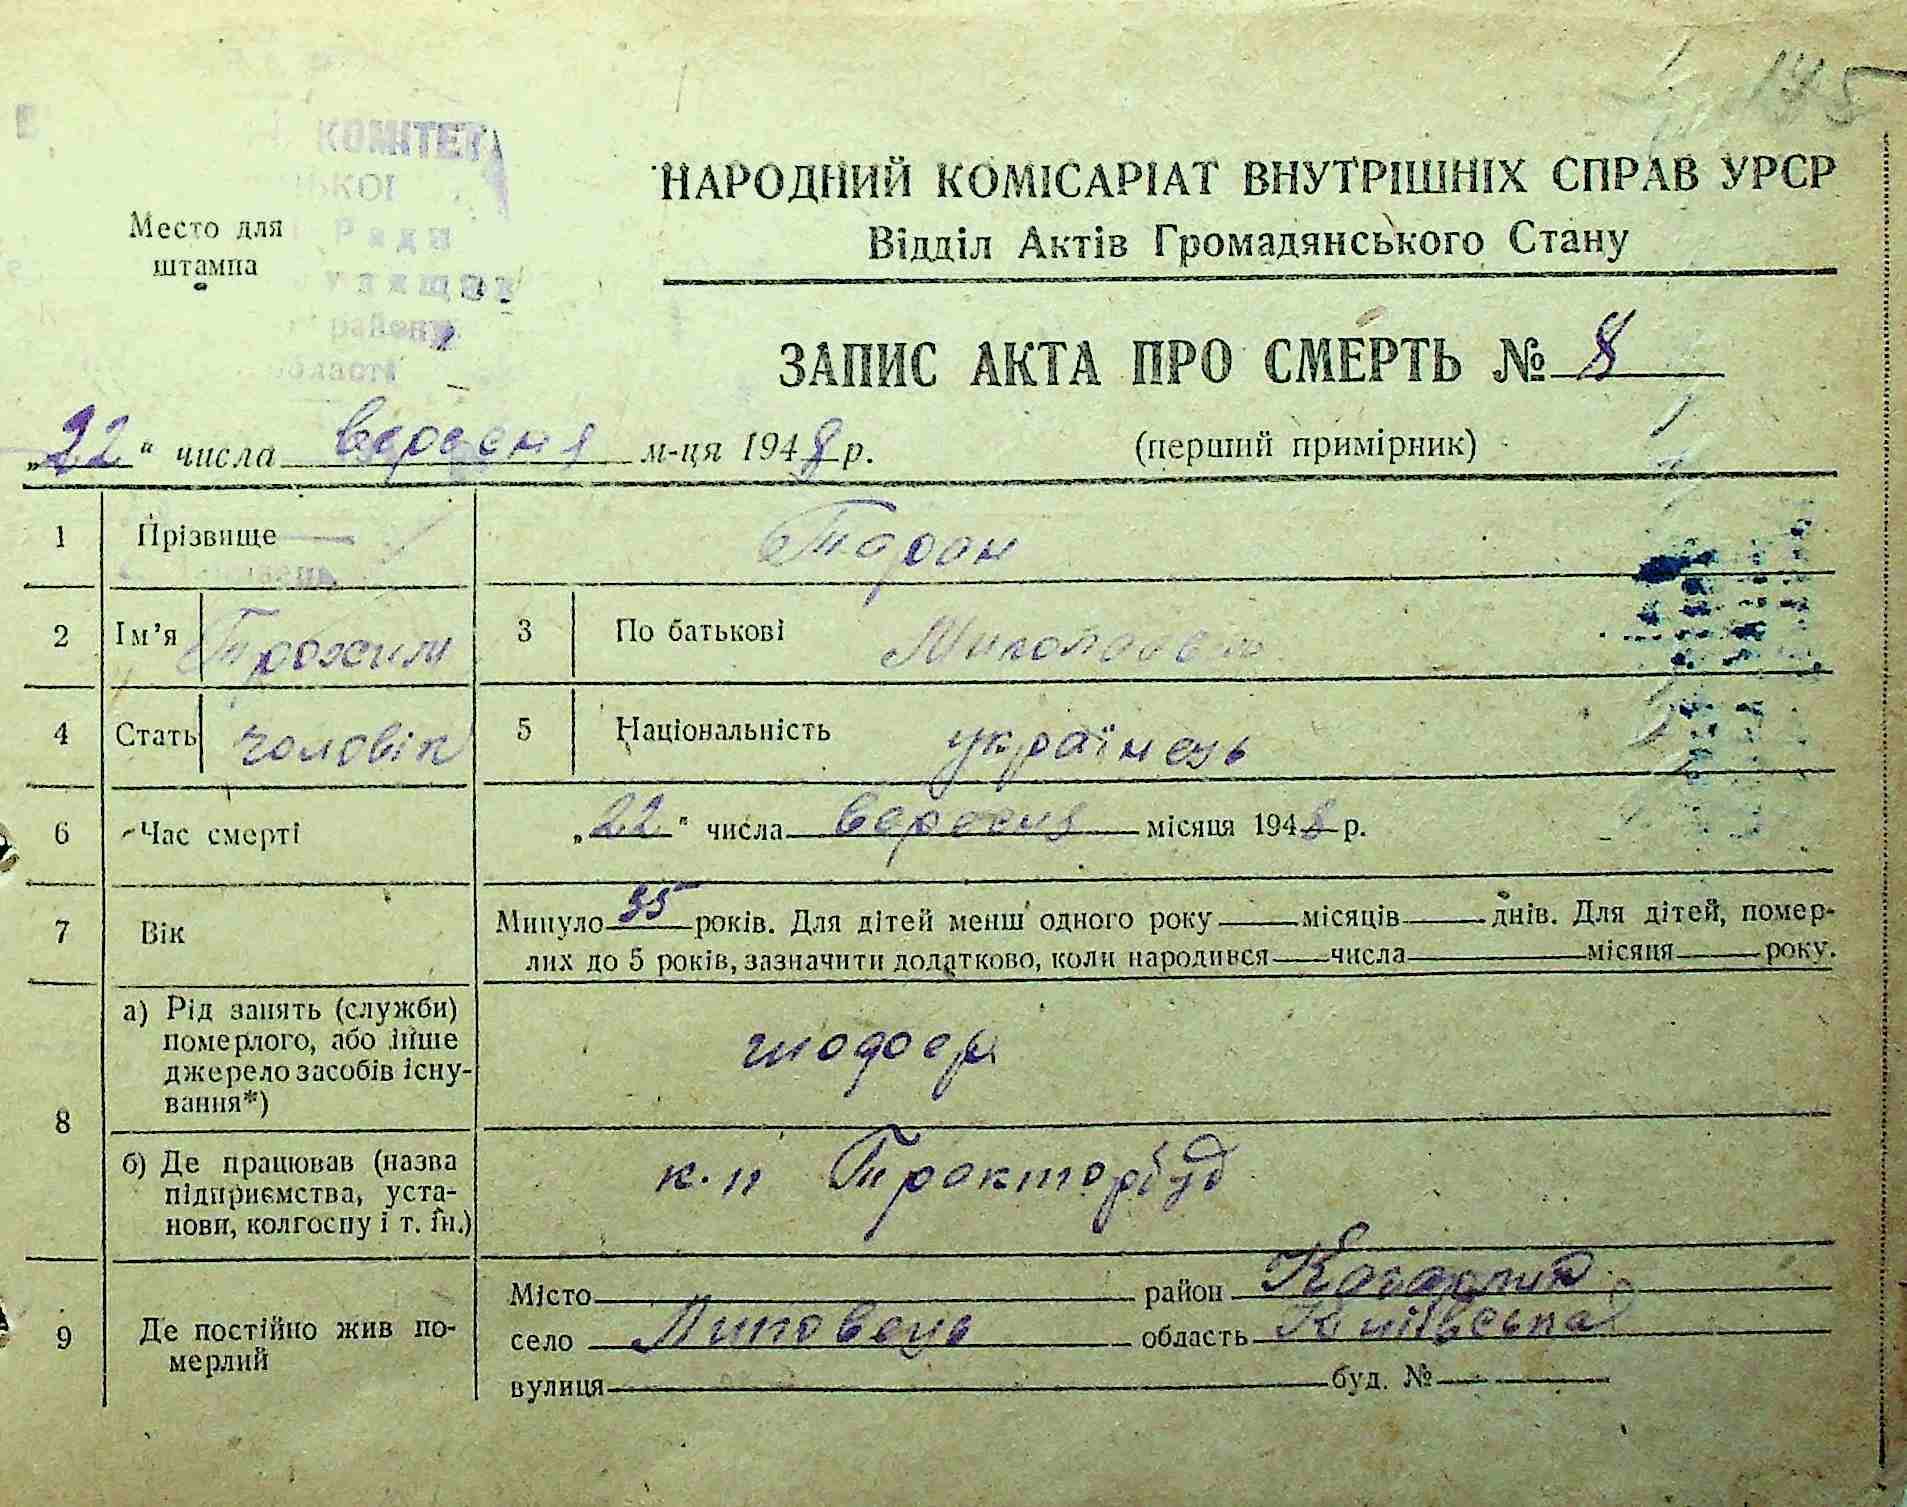 175
КОМІТЕТ
ЬКОЇ
Ради
району
області
Место для
штампа
НАРОДНИЙ КОМІСАРІАТ ВНУТРІШНІХ СПРАВ УРСР
Відділ Актів Громадянського Стану
ЗАПИС АКТА ПРО СМЕРТЬ № 8
„22" числа вересня м-ця 1948 р.
(перший примірник)
1 Прізвище Таран
2 Ім'я Трохим 3 По батькові Миколаєвич
4 Стать чоловік 5 Національність українець
6 Час смерті „22" числа вересня місяця 1948 р.
7 Вік Минуло 35 років. Для дітей менш одного року місяців днів. Для дітей, помер-
лих до 5 років, зазначити додатково, коли народився числа місяця року.
8 а) Рід занять (служби)
померлого, або інше
джерело засобів існу-
вання*)
шофер
б) Де працював (назва
підприємства, уста-
нови, колгоспу і т. ін.)
к.п Тракторбуд
9 Де постійно жив по-
мерлий
Місто район Кагарлик
село Липовець область Київська
вулиця буд. №